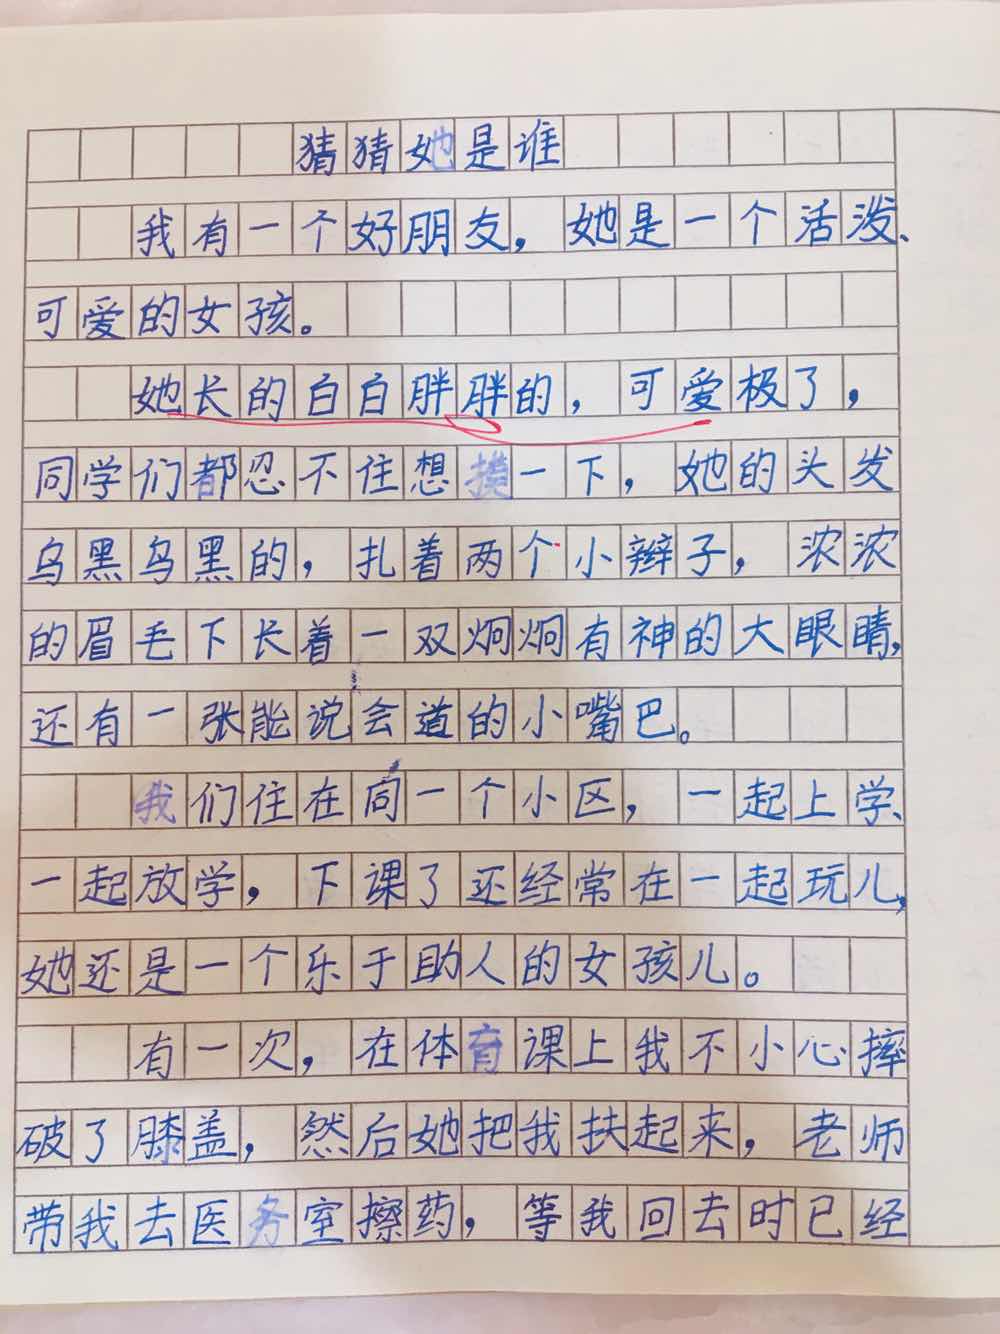 猜猜她是谁
我有一个好朋友，她是一个活泼、
可爱的女孩。
她长的白白胖胖的，可爱极了，
同学们都忍不住想摸一下，她的头发
乌黑乌黑的，扎着两个小辫子，浓浓
的眉毛下长着一双炯炯有神的大眼睛，
还有一张能说会道的小嘴巴。
我们住在同一个小区，一起上学、
一起放学，下课了还经常在一起玩儿，
她还是一个乐于助人的女孩儿。
有一次，在体育课上我不小心摔
破了膝盖，然后她把我扶起来，老师
带我去医务室擦药，等我回去时已经